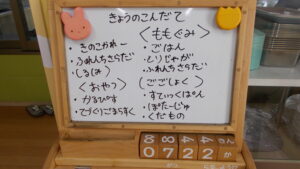 きょうのこんだて
・きのこかれー
・ふれんちさらだ
<おやつ>
・かるぴす
<ももぐみ>
・ごはん
・とりじゃが
・ふれんちさらだ
(ごごしょく)
・すてぃっくぱん
・ぽたーじゅ
・くだもの